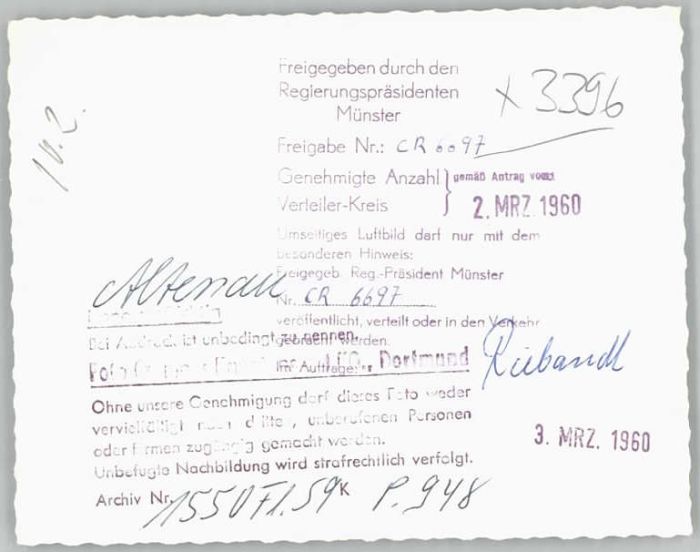 Freigegeben durch den
Regierungspräsidenten
Münster
x 3396
10.2.
Freigabe Nr.: CR 6697
Genehmigte Anzahl } gemäß Antrag vom:
Verteiler-Kreis 2. MRZ. 1960
Umseitiges Luftbild darf nur mit dem
besonderen Hinweis:
Freigegeb. Reg.-Präsident Münster
Nr. CR 6697
veröffentlicht, verteilt oder in den Verkehr
gebracht werden.
Im Auftrage:
Altenau
Bei Abdruck ist unbedingt zu nennen.
Foto Dortmund
Ohne unsere Genehmigung darf dieses Foto weder
vervielfältigt noch dritten, unberufenen Personen
oder Firmen zugängig gemacht werden.
Unbefugte Nachbildung wird strafrechtlich verfolgt.
3. MRZ. 1960
Archiv Nr. 1550 Fl. 59 K P. 948